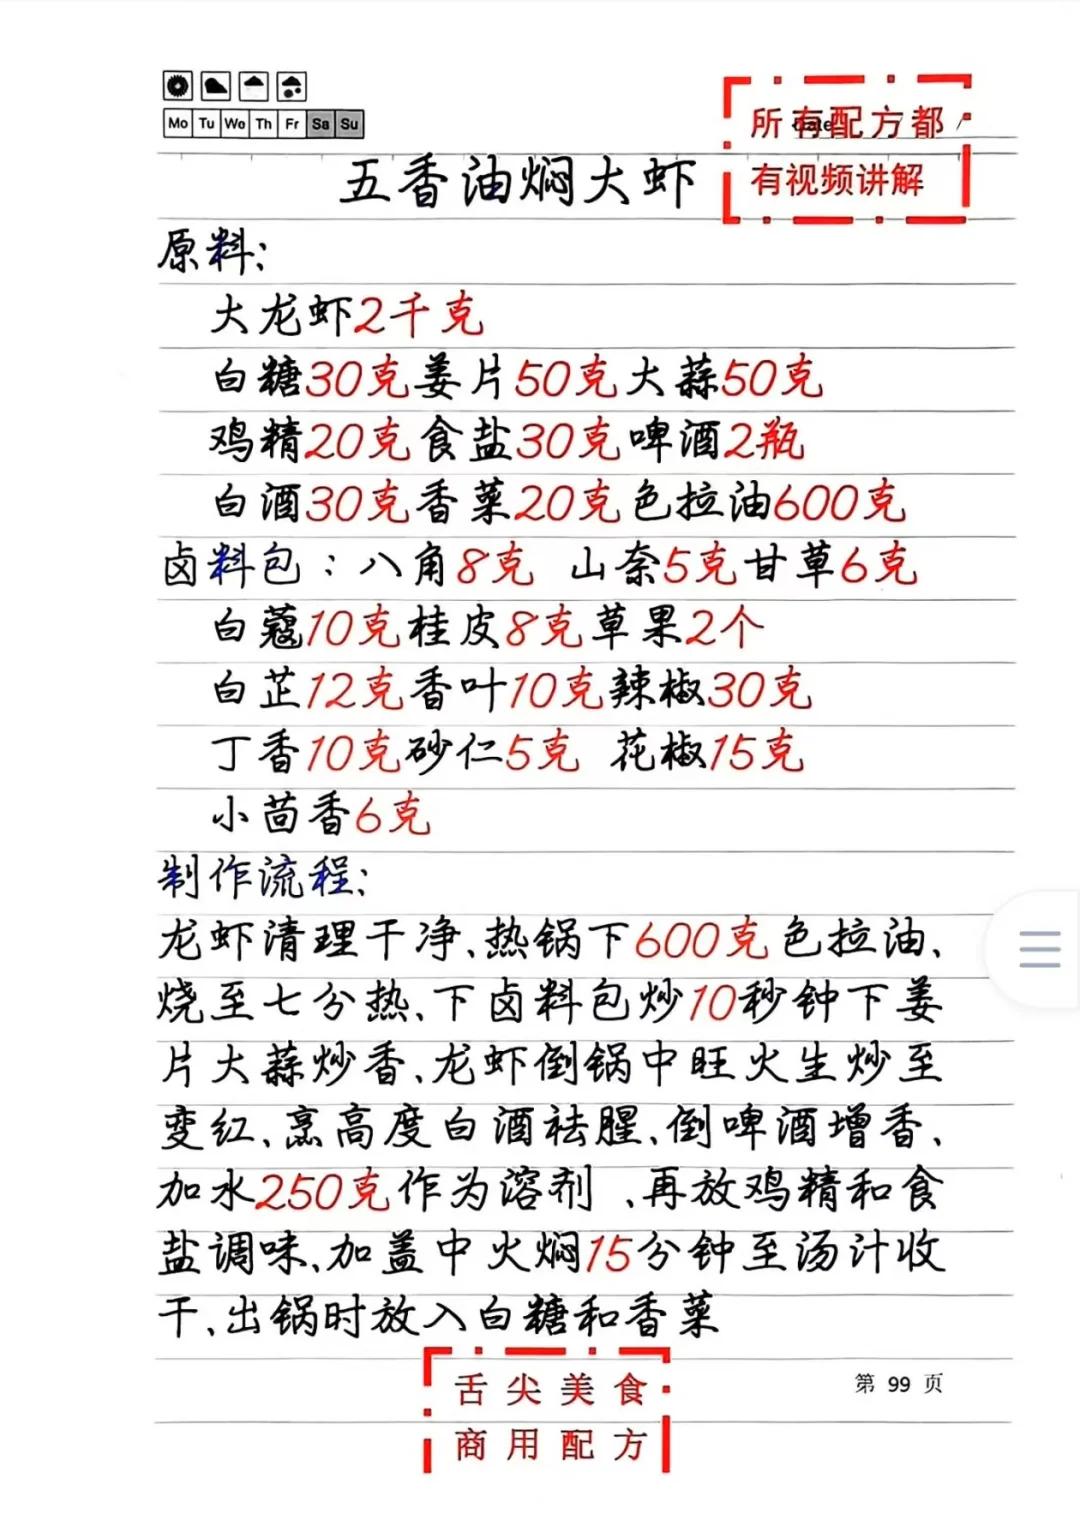 Mo Tu We Th Fr Sa Su
所有配方都
有视频讲解
五香油焖大虾
原料:
大龙虾2千克
白糖30克姜片50克大蒜50克
鸡精20克食盐30克啤酒2瓶
白酒30克香菜20克色拉油600克
卤料包：八角8克 山奈5克甘草6克
白蔻10克桂皮8克草果2个
白芷12克香叶10克辣椒30克
丁香10克砂仁5克 花椒15克
小茴香6克
制作流程:
龙虾清理干净、热锅下600克色拉油、
烧至七分热、下卤料包炒10秒钟下姜
片大蒜炒香、龙虾倒锅中旺火生炒至
变红、烹高度白酒祛腥、倒啤酒增香、
加水250克作为溶剂、再放鸡精和食
盐调味、加盖中火焖15分钟至汤汁收
干、出锅时放入白糖和香菜
第 99 页
舌尖美食
商用配方